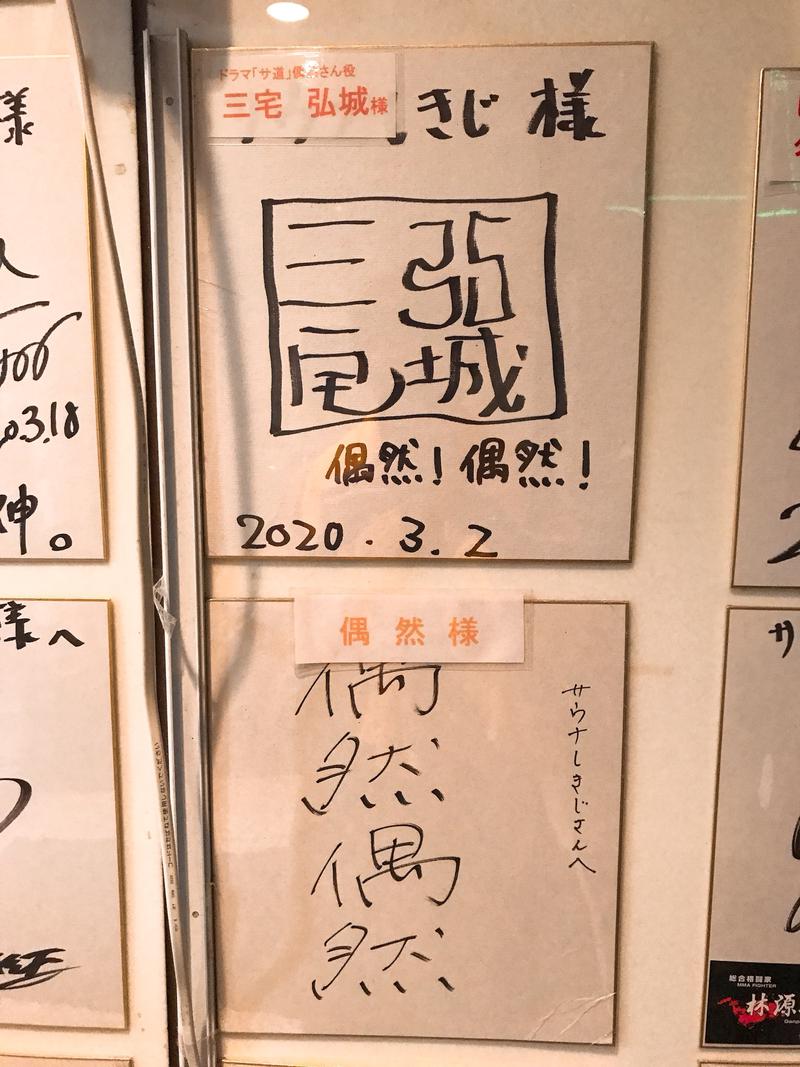 ドラマ「サ道」偶然さん役
三宅 弘城様
きじ 様
三宅
弘城
偶然! 偶然!
2020.3.2
偶然様
サウナしきじさんへ
偶
然
偶
然
様
3.18
神。
様へ
サ
総合格闘家
MMA FIGHTER
林源